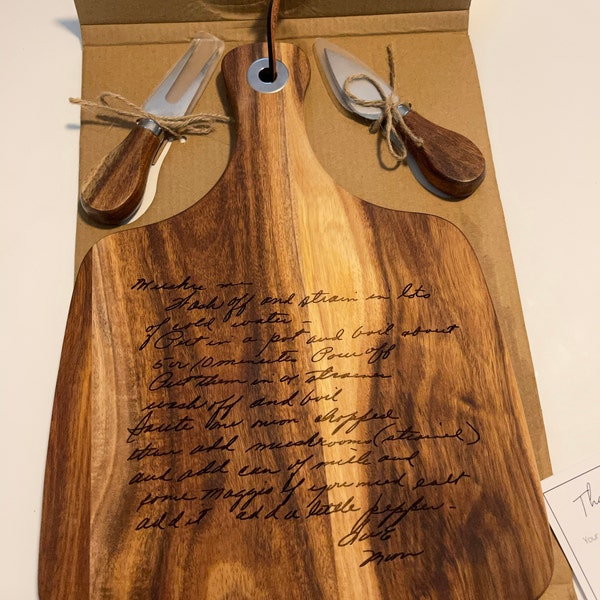 Wash off and strain in lots
of cold water -
Put in a pot and boil about
5 or 10 minutes Pour off
Put them in a strainer
wash off and boil
Saute one onion chopped
then add mushrooms (strained)
and add can of milk and
some Maggi if you need salt
add it add a little pepper -
Love
Mom
Tha
You